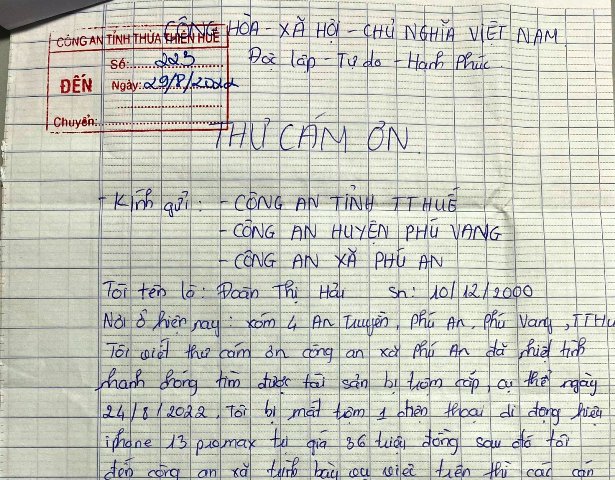 CỘNG HÒA - XÃ HỘI - CHỦ NGHĨA VIỆT NAM
CÔNG AN TỈNH THỪA THIÊN HUẾ
ĐẾN
Số: 223
Ngày: 29/8/2022
Chuyển:
Độc lập - Tự do - Hạnh Phúc
THƯ CẢM ƠN
- Kính gửi: - CÔNG AN TỈNH TT HUẾ
- CÔNG AN HUYỆN PHÚ VANG
- CÔNG AN XÃ PHÚ AN
Tôi tên là: Đoàn Thị Hải Sn: 10/12/2000
Nơi ở hiện nay: xóm 4 An Truyền, Phú An, Phú Vang, TTHu
Tôi viết thư cảm ơn công an xã Phú An đã nhiệt tình
nhanh chóng tìm được tài sản bị trộm cắp, cụ thể ngày
24/8/2022. Tôi bị mất trộm 1 điện thoại di động hiệu
iphone 13 promax trị giá 36 triệu đồng sau đó tôi
đến công an xã trình bày vụ việc trên thì các cán